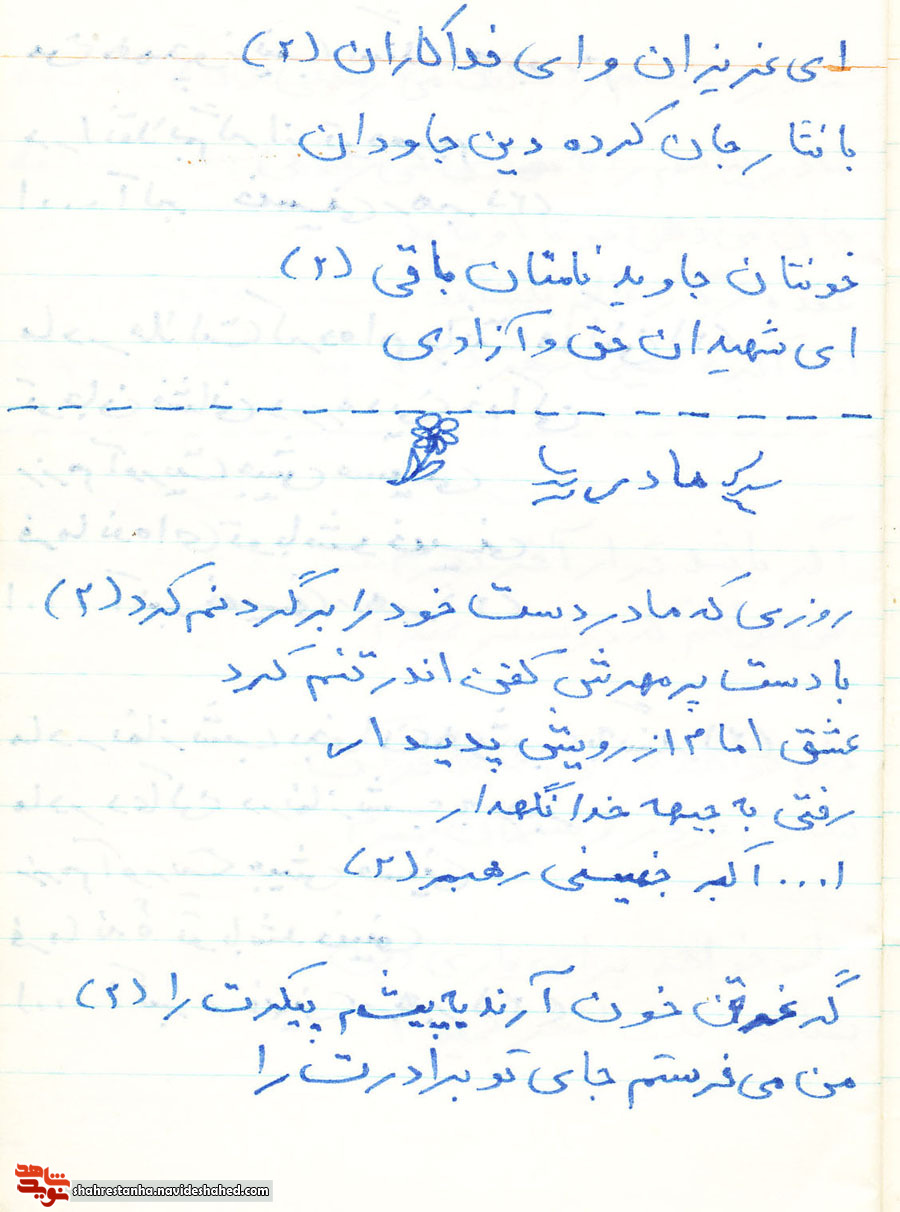 ای عزیزان و ای فداکاران (۲)
با نثار جان کرده دین جاودان
خونتان جاوید نامتان باقی (۲)
ای شهیدان حق و آزادی
مادری
روزی که مادر دست خود را بر گردنم کرد (۲)
با دست پر مهرش کفن اندر تنم کرد
عشق امام از رویش پدیدار
رفتی به جبهه خدا نگهدار
ا... اکبر خمینی رهبر (۲)
گر غرق خون آرند به پیشم پیکرت را (۲)
من می فرستم جای تو برادرت را
شاهد
نوید
shahrestanha.navideshahed.com